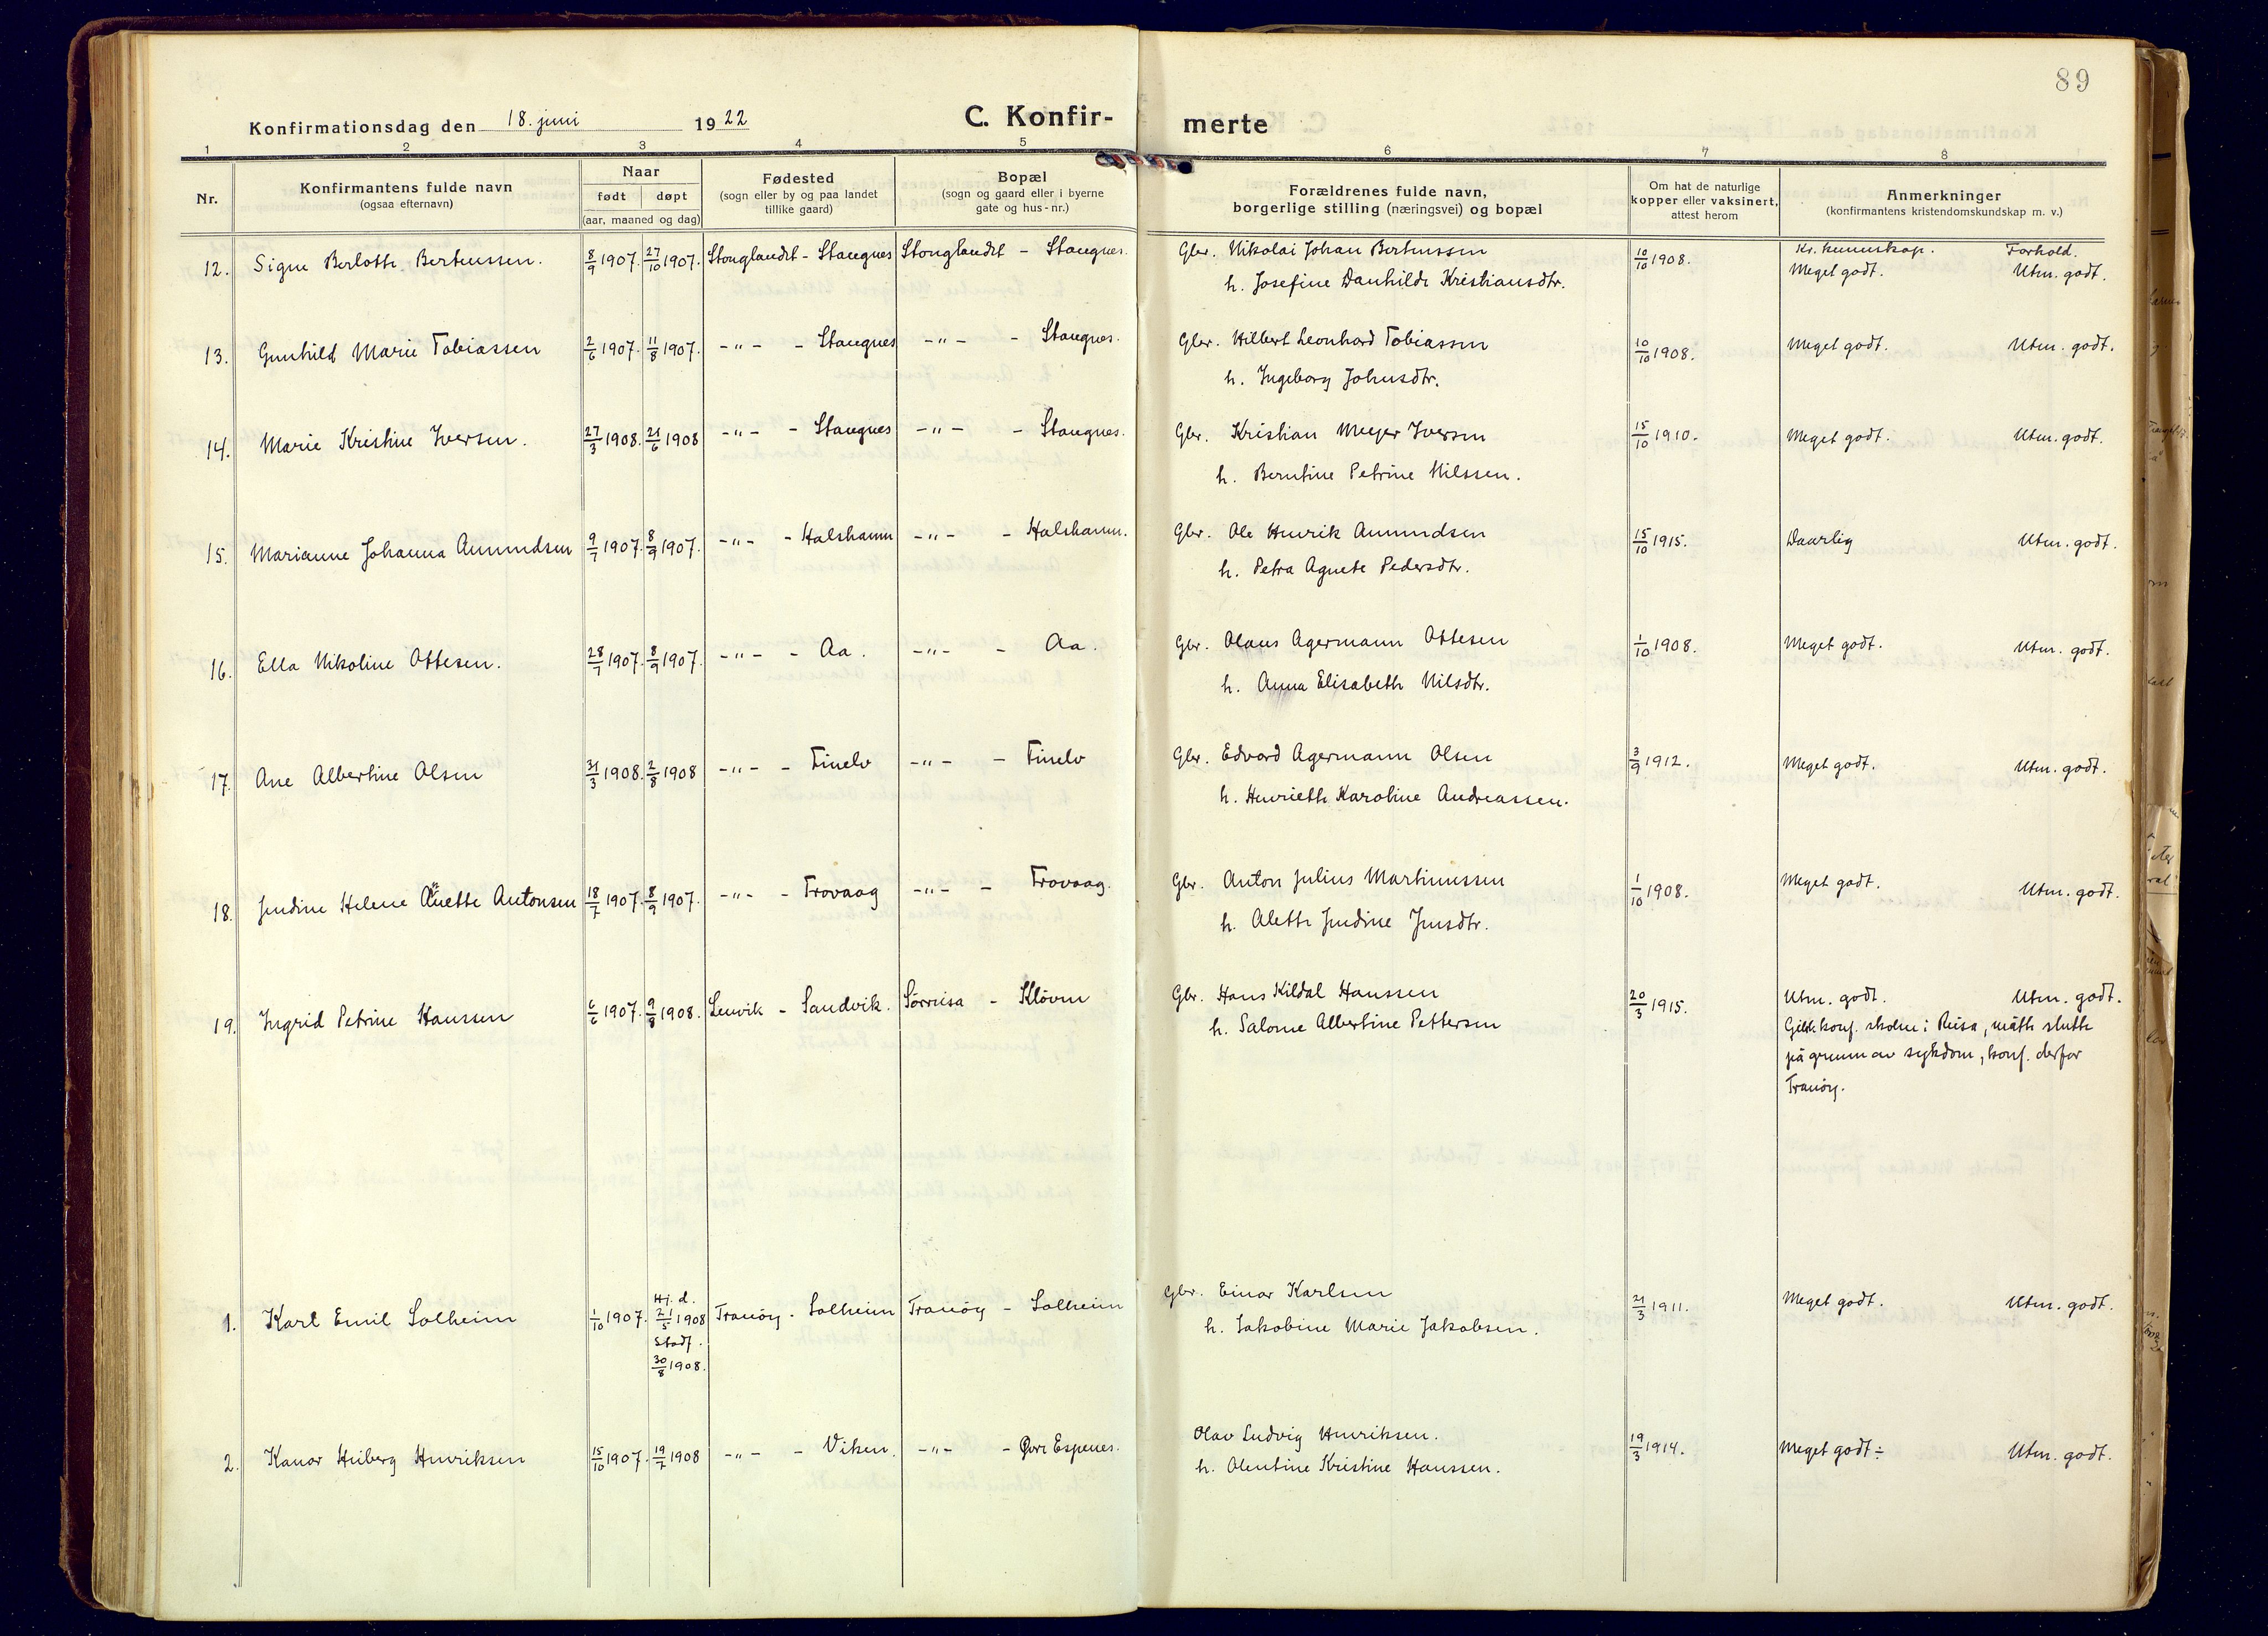 89
Konfirmationsdag den 18. juni 1922 C. Konfir- merte
1 2 3 4 5 6 7 8
Nr.
Konfirmantens fulde navn
(ogsaa efternavn)
Naar
født døpt
(aar, maaned og dag)
Fødested
(sogn eller by og paa landet
tillike gaard)
Bopæl
(sogn og gaard eller i byerne
gate og hus-nr.)
Forældrenes fulde navn,
borgerlige stilling (næringsvei) og bopæl
Om hat de naturlige
kopper eller vaksinert,
attest herom
Anmerkninger
(konfirmantens kristendomskundskap m. v.)
Kr. kunnskap. Forhold.
12. Signe Berlotte Berteussen. 8/9 1907. 27/10 1907. Stonglandet - Stangnes Stonglandet - Stangnes. Gbr. Nikolai Johan Berteussen 10/10 1908. Meget godt. Utm. godt.
h. Josefine Danhilde Kristiansdtr.
13. Gunhild Marie Tobiassen 2/6 1907. 11/8 1907. -"- - Stangnes -"- - Stangnes. Gbr. Hilbert Leonhard Tobiassen 10/10 1908. Meget godt. Utm. godt.
h. Ingeborg Johnsdtr.
14. Marie Kristine Iversen. 27/3 1908. 21/6 1908 -"- - Stangnes -"- - Stangnes. Gbr. Kristian Meyer Iversen 15/10 1910. Meget godt. Utm. godt.
h. Berntine Petrine Nilssen.
15. Marianne Johanna Amundsen 9/7 1907. 8/9 1907. -"- - Halshamn -"- - Halshamn. Gbr. Ole Henrik Amundsen 15/10 1915. Daarlig Utm. godt.
h. Petra Agnete Pedersdtr.
16. Ella Nikoline Ottesen. 28/7 1907. 8/9 1907. -"- - Aa. -"- - Aa. Gbr. Olaus Agermann Ottesen 1/10 1908. Meget godt. Utm. godt.
h. Anna Elisabeth Nilsdtr.
17. Ane Albertine Olsen 31/3 1908. 2/8 1908 -"- - Finelv -"- - Finelv Gbr. Edvard Agermann Olsen 3/9 1912. Meget godt. Utm. godt.
h. Henriette Karoline Andreassen.
18. Jendine Helene Anette Antonsen 18/7 1907. 8/9 1907. -"- - Trovaag -"- - Trovaag. Gbr. Anton Julius Martinussen 1/10 1908. Meget godt. Utm. godt.
h. Alette Jendine Jensdtr.
19. Ingrid Petrine Hanssen 6/6 1907. 9/8 1908. Lenvik - Sandvik. Sørreisa - Kløven Gbr. Hans Kildal Hanssen 20/3 1915. Utm. godt. Utm. godt.
h. Salome Albertine Pettersen
Gikk konf. skolen i Reisa, måtte slutte
på grunn av sykdom, konf. derfor
Tranøy.
1. Karl Emil Solheim 1/10 1907. Hj. d. 21/5 1908 Tranøy - Solheim Tranøy - Solheim Gbr. Einar Karlsen 21/3 1911. Meget godt. Utm. godt.
Stadf.
30/8 1908.
h. Jakobine Marie Jakobsen.
2. Kanar Heiberg Henriksen 15/10 1907. 19/7 1908 -"- - Viken. -"- - Øvre Espenes. Olav Ludvig Henriksen. 19/3 1914. Meget godt ÷ Utm. godt.
h. Olentine Kristine Hanssen.